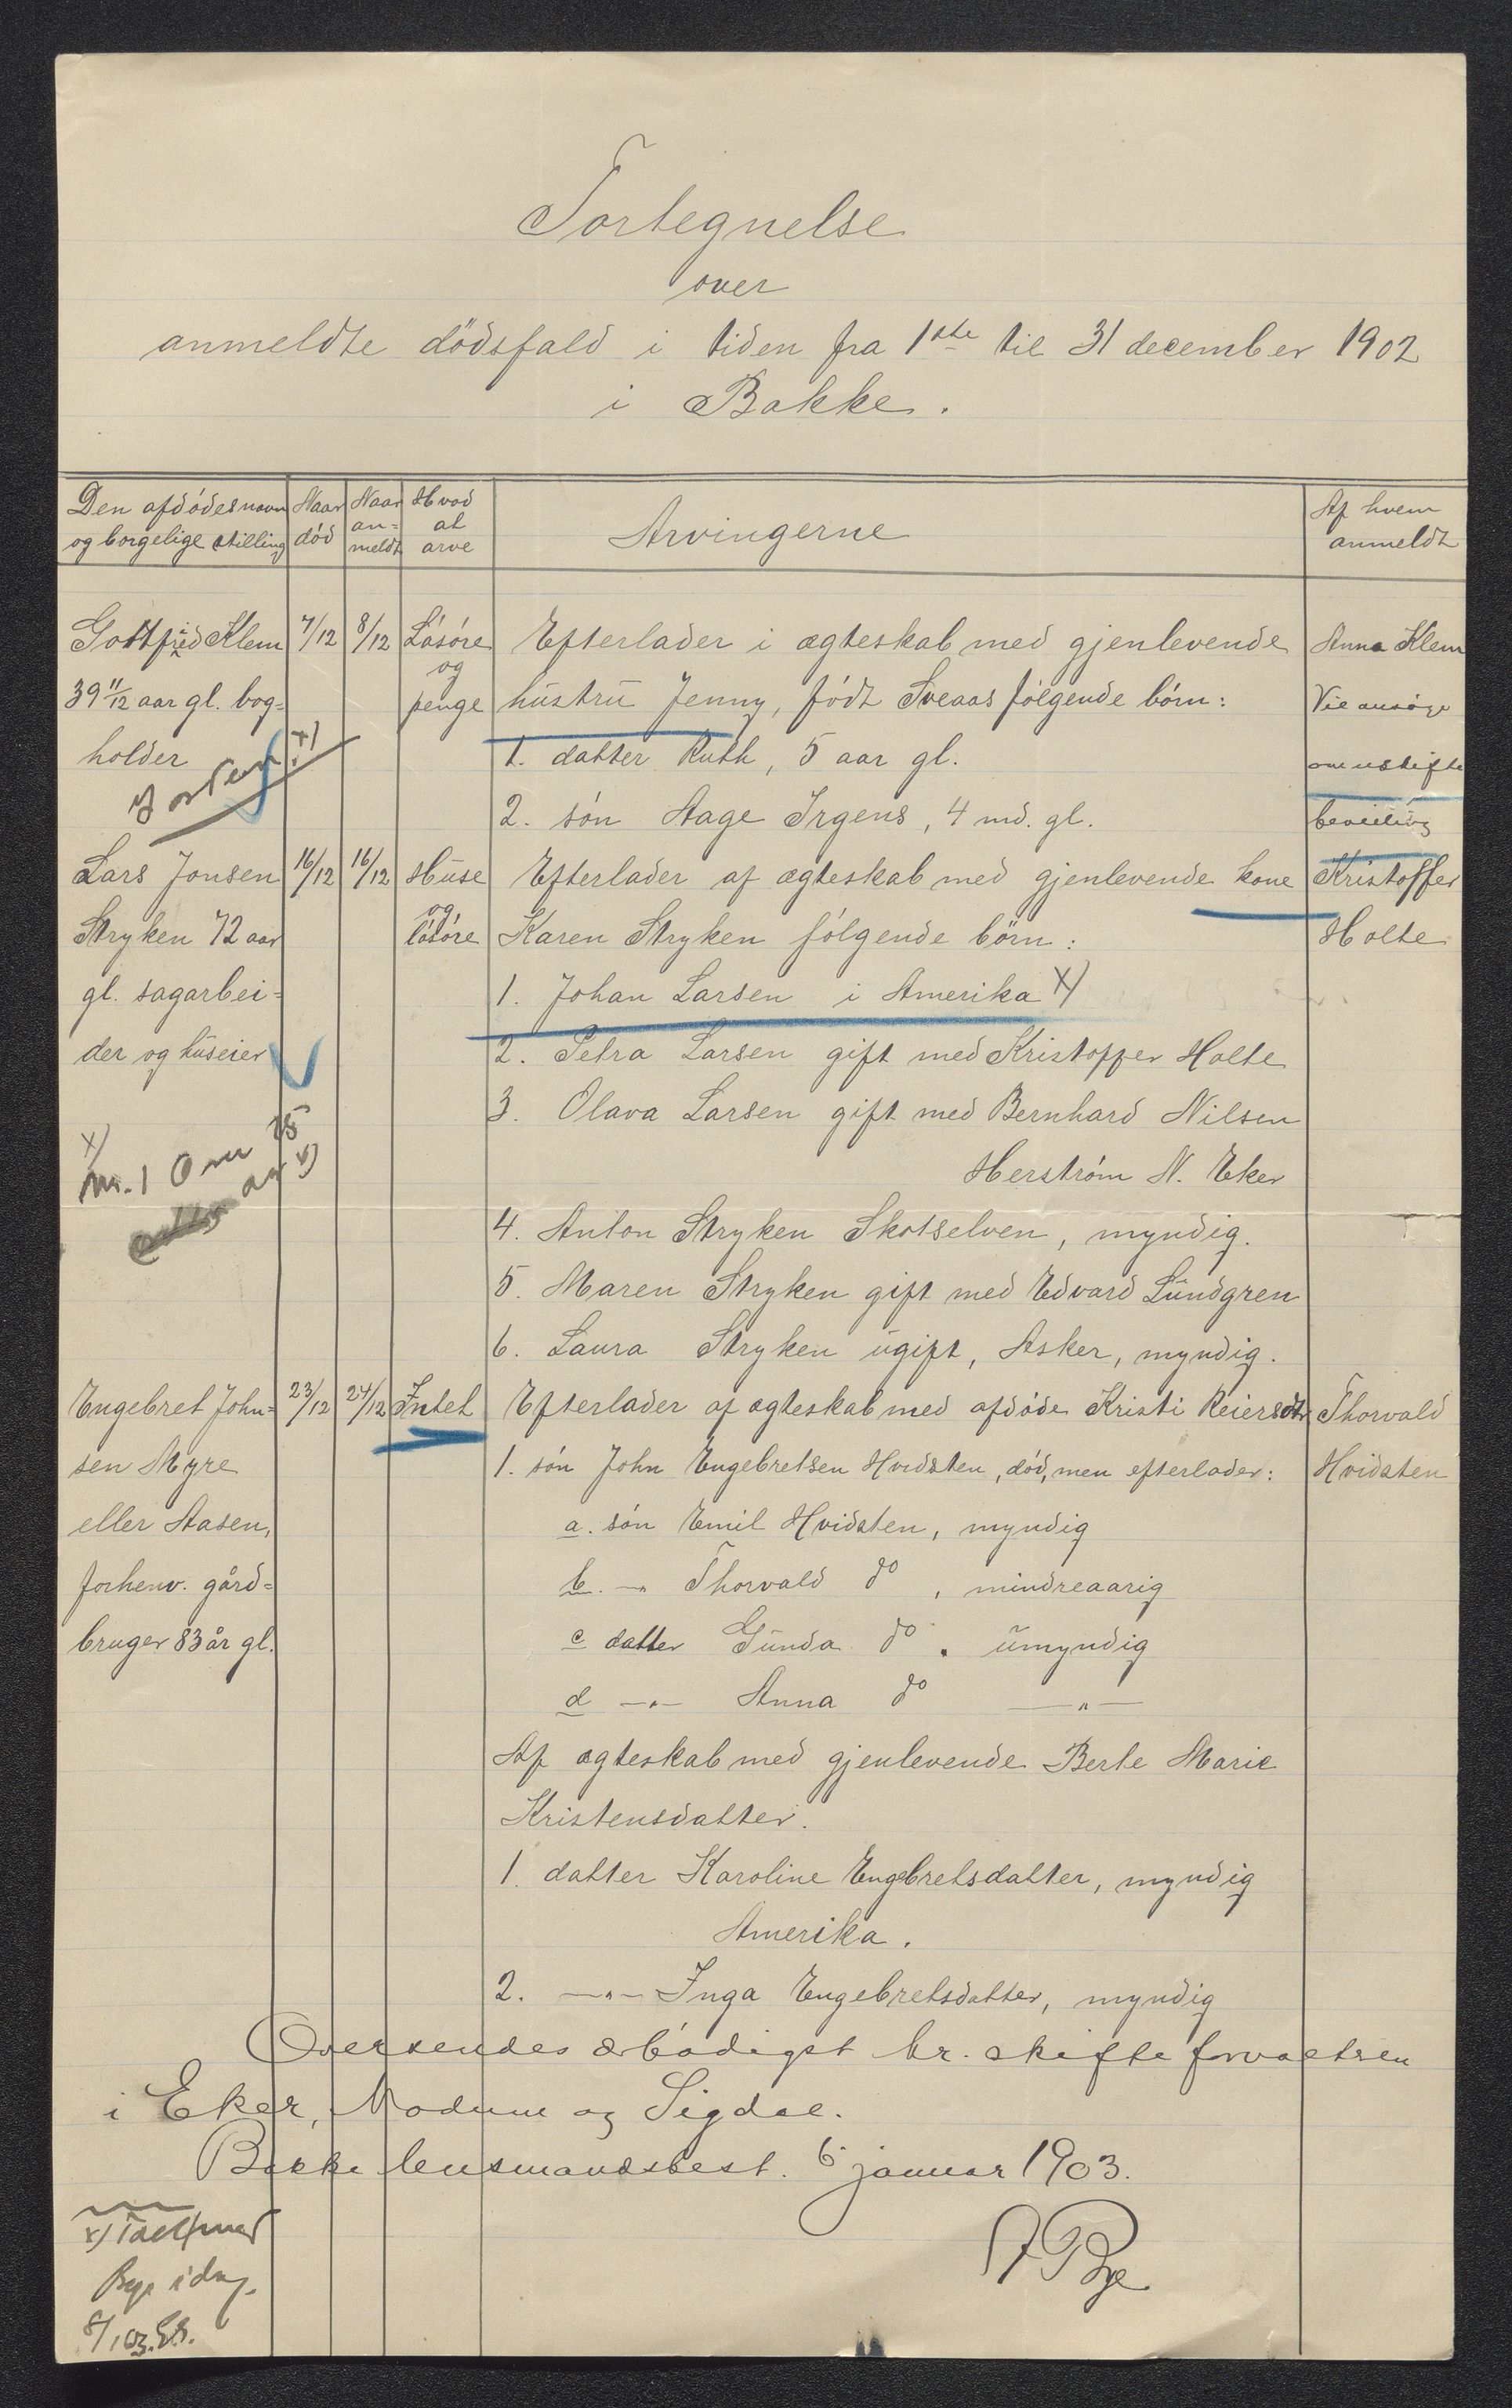 Fortegnelse
over
anmeldte dödsfald i tiden fra 1ste til 31 december 1902
i Bakke.
Den afdödes navn og borgelige stilling
Naar död
Naar an= meldt
Hvad at arve
Arvingerne
Af hvem anmeldt
Gottfried Klem
39 11/12 aar gl. bog=
holder
x)
7/12
8/12
Lösöre
og
penge
Efterlader i ægteskab med gjenlevende
hustru Jenny, födt Sveaas fölgende börn:
1. datter Ruth, 5 aar gl.
2. sön Aage Irgens, 4 md. gl.
Anna Klem
Vil ansöge
om uskifte
bevilling
Lars Jonsen
Stryken 72 aar
gl. sagarbei=
der og huseier
x)
Nr. 1 Over 25
aar x)
16/12
16/12
Huse
og
lösöre
Efterlader af ægteskab med gjenlevende kone
Karen Stryken fölgende börn:
1. Johan Larsen i Amerika x)
2. Petra Larsen gift med Kristoffer Holte
3. Olava Larsen gift med Bernhard Nilsen
Herström N. Eker
4. Anton Stryken Skotselven, myndig.
5. Maren Stryken gift med Edvard Lundgren
6. Laura Stryken ugift, Asker, myndig.
Kristoffer
Holte
Engebret John=
sen Myre
eller Aasen,
forhenv. gård=
bruger 83 år gl.
23/12
24/12
Intet
Efterlader af ægteskab med afdöde Kristi Reiersdtr
1. sön John Engebretsen Hvidsten, död, men efterlader:
a. sön Emil Hvidsten, myndig
b. -"- Thorvald do, mindreaarig
c datter Gunda do. umyndig
d -"- Anna do -"-
Af ægteskab med gjenlevende Berte Marie
Kristensdatter.
1. datter Karoline Engebretsdatter, myndig
Amerika.
2. -"- Inga Engebretsdatter, myndig
Thorvald
Hvidsten
Oversendes ærbödigst hr. skifteforvalteren
i Eker, Modum og Sigdal.
Bakke lensmandsbest. 6 januar 1903.
Bye
x) Talt med
Bye idag.
8/1 03.